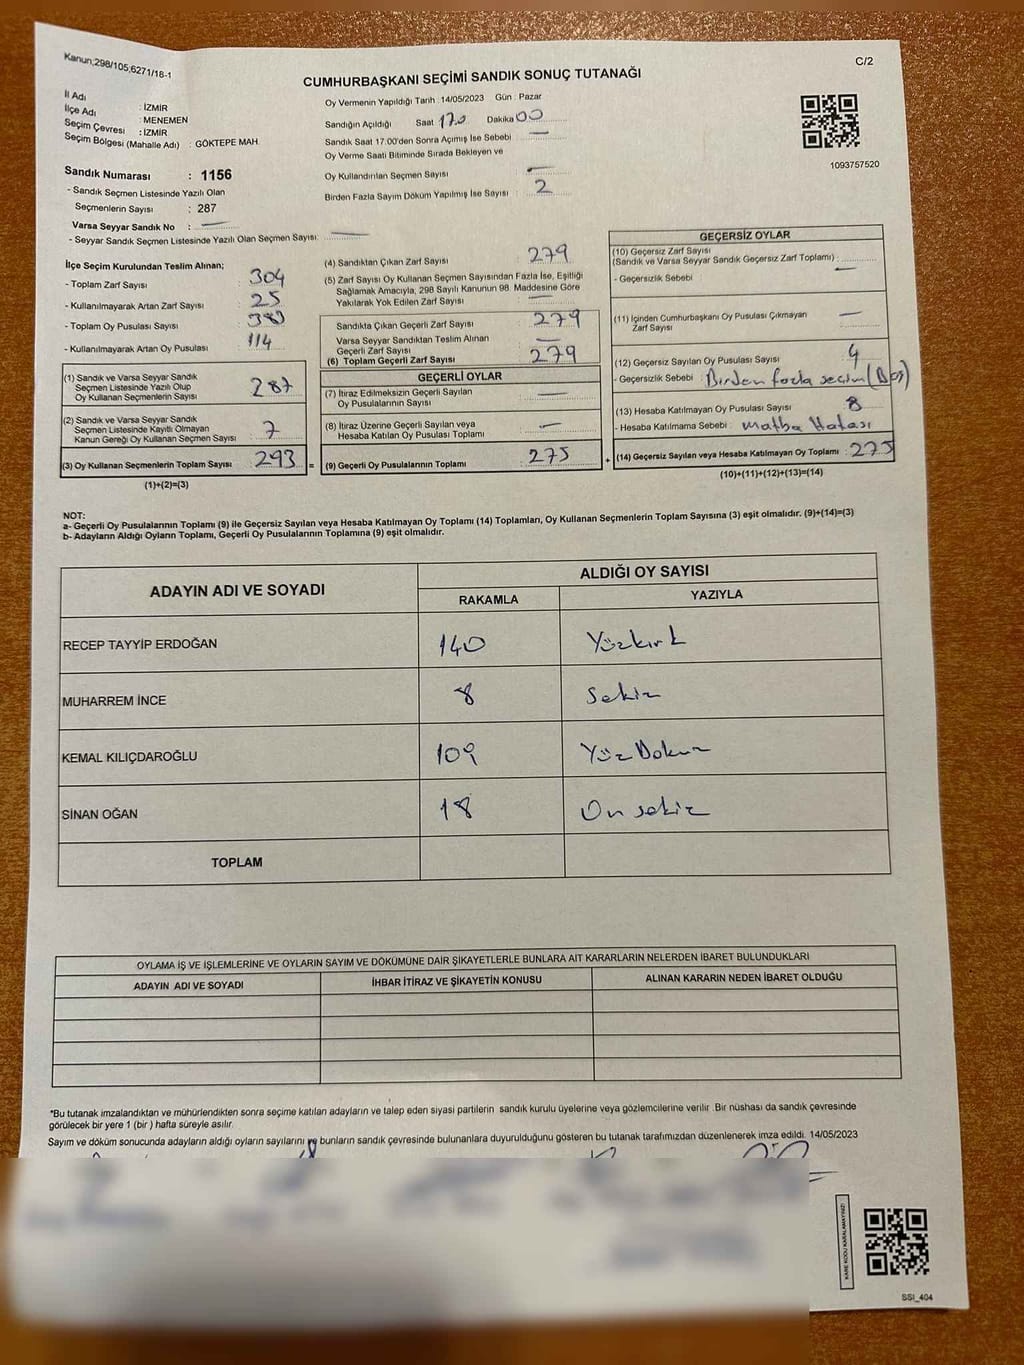 Kanun;298/105;6271/18-1
C/2
CUMHURBAŞKANI SEÇİMİ SANDIK SONUÇ TUTANAĞI
İl Adı : İZMİR
İlçe Adı : MENEMEN
Seçim Çevresi : İZMİR
Seçim Bölgesi (Mahalle Adı) : GÖKTEPE MAH.
Oy Vermenin Yapıldığı Tarih :14/05/2023 Gün : Pazar
Sandığın Açıldığı Saat 17.0 Dakika 00
Sandık Saat 17.00'den Sonra Açımış İse Sebebi —
Oy Verme Saati Bitiminde Sırada Bekleyen ve
Oy Kullandırılan Seçmen Sayısı : —
Birden Fazla Sayım Döküm Yapılmış İse Sayısı : 2
1093757520
Sandık Numarası : 1156
- Sandık Seçmen Listesinde Yazılı Olan
Seçmenlerin Sayısı : 287
Varsa Seyyar Sandık No : —
- Seyyar Sandık Seçmen Listesinde Yazılı Olan Seçmen Sayısı: —
İlçe Seçim Kurulundan Teslim Alınan;
- Toplam Zarf Sayısı 304
- Kullanılmayarak Artan Zarf Sayısı 25
- Toplam Oy Pusulası Sayısı
- Kullanılmayarak Artan Oy Pusulası 114
(1) Sandık ve Varsa Seyyar Sandık
Seçmen Listesinde Yazılı Olup
Oy Kullanan Seçmenlerin Sayısı 287
(2) Sandık ve Varsa Seyyar Sandık
Seçmen Listesinde Kayıtlı Olmayan
Kanun Gereği Oy Kullanan Seçmen Sayısı 7
(3) Oy Kullanan Seçmenlerin Toplam Sayısı 293
(1)+(2)=(3)
(4) Sandıktan Çıkan Zarf Sayısı 279
(5) Zarf Sayısı Oy Kullanan Seçmen Sayısından Fazla İse, Eşitliği
Sağlamak Amacıyla, 298 Sayılı Kanunun 98. Maddesine Göre
Yakılarak Yok Edilen Zarf Sayısı —
Sandıkta Çıkan Geçerli Zarf Sayısı : 279
Varsa Seyyar Sandıktan Teslim Alınan
Geçerli Zarf Sayısı —
(6) Toplam Geçerli Zarf Sayısı : 279
GEÇERLİ OYLAR
(7) İtiraz Edilmeksizin Geçerli Sayılan
Oy Pusulalarının Sayısı : —
(8) İtiraz Üzerine Geçerli Sayılan veya
Hesaba Katılan Oy Pusulaları Toplamı : —
= (9) Geçerli Oy Pusulalarının Toplamı : 275
GEÇERSİZ OYLAR
(10) Geçersiz Zarf Sayısı
(Sandık ve Varsa Seyyar Sandık Geçersiz Zarf Toplamı) : —
- Geçersizlik Sebebi
(11) İçinden Cumhurbaşkanı Oy Pusulası Çıkmayan
Zarf Sayısı : —
(12) Geçersiz Sayılan Oy Pusulası Sayısı : 4
- Geçersizlik Sebebi : Birden fazla seçim (Boş)
(13) Hesaba Katılmayan Oy Pusulası Sayısı : 8
- Hesaba Katılmama Sebebi : Matba Hatası
+ (14) Geçersiz Sayılan veya Hesaba Katılmayan Oy Toplamı : 275
(10)+(11)+(12)+(13)=(14)
NOT:
a- Geçerli Oy Pusulalarının Toplamı (9) ile Geçersiz Sayılan veya Hesaba Katılmayan Oy Toplamı (14) Toplamları, Oy Kullanan Seçmenlerin Toplam Sayısına (3) eşit olmalıdır. (9)+(14)=(3)
b- Adayların Aldığı Oyların Toplamı, Geçerli Oy Pusulalarının Toplamına (9) eşit olmalıdır.
ADAYIN ADI VE SOYADI
ALDIĞI OY SAYISI
RAKAMLA YAZIYLA
RECEP TAYYİP ERDOĞAN 140 Yüzkırk
MUHARREM İNCE 8 Sekiz
KEMAL KILIÇDAROĞLU 109 Yüz Dokuz
SİNAN OĞAN 18 On sekiz
TOPLAM
OYLAMA İŞ VE İŞLEMLERİNE VE OYLARIN SAYIM VE DÖKÜMÜNE DAİR ŞİKAYETLERLE BUNLARA AİT KARARLARIN NELERDEN İBARET BULUNDUKLARI
ADAYIN ADI VE SOYADI İHBAR İTİRAZ VE ŞİKAYETİN KONUSU ALINAN KARARIN NEDEN İBARET OLDUĞU
*Bu tutanak imzalandıktan ve mühürlendikten sonra seçime katılan adayların ve talep eden siyasi partilerin sandık kurulu üyelerine veya gözlemcilerine verilir .Bir nüshası da sandık çevresinde
görülecek bir yere 1 (bir ) hafta süreyle asılır.
Sayım ve döküm sonucunda adayların aldığı oyların sayılarını ve bunların sandık çevresinde bulunanlara duyurulduğunu gösteren bu tutanak tarafımızdan düzenlenerek imza edildi. 14/05/2023
KARE KODU KARALAMAYINIZ!
SSI_404